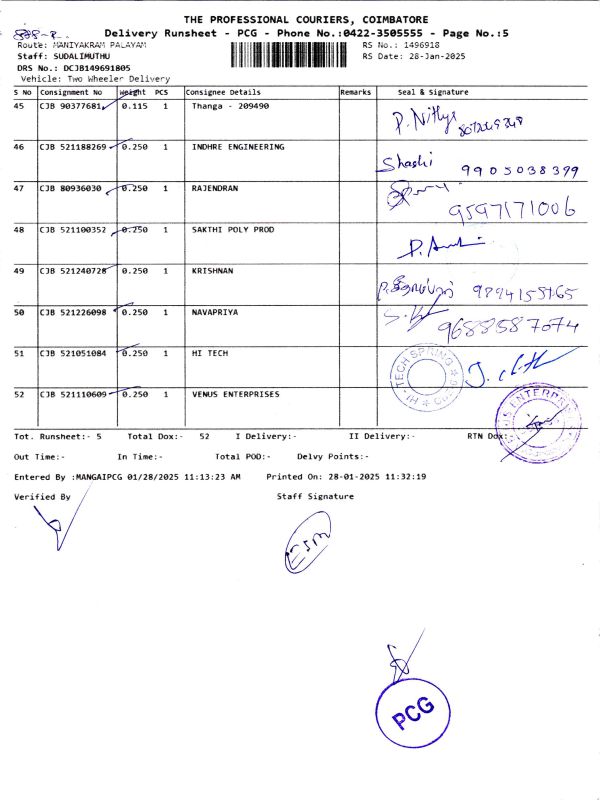 THE PROFESSIONAL COURIERS, COIMBATORE
Delivery Runsheet - PCG - Phone No.:0422-3505555 - Page No.:5
Route: MANIYAKRAM PALAYAM RS No.: 1496918
Staff: SUDALIMUTHU RS Date: 28-Jan-2025
DRS No.: DCJB149691805
Vehicle: Two Wheeler Delivery
S No Consignment No Weight PCS Consignee Details Remarks Seal & Signature
45 CJB 90377681 0.115 1 Thanga - 209490 P. Nithya
46 CJB 521188269 0.250 1 INDHRE ENGINEERING Shashi 9905038399
47 CJB 80936030 0.250 1 RAJENDRAN 9597171006
48 CJB 521100352 0.250 1 SAKTHI POLY PROD
49 CJB 521240728 0.250 1 KRISHNAN
50 CJB 521226098 0.250 1 NAVAPRIYA 9688587074
51 CJB 521051084 0.250 1 HI TECH HI-TECH SPRING
52 CJB 521110609 0.250 1 VENUS ENTERPRISES
Tot. Runsheet:- 5 Total Dox:- 52 I Delivery:- II Delivery:- RTN Dox:
Out Time:- In Time:- Total POD:- Delvy Points:-
Entered By :MANGAIPCG 01/28/2025 11:13:23 AM Printed On: 28-01-2025 11:32:19
Verified By Staff Signature
ESM
PCG